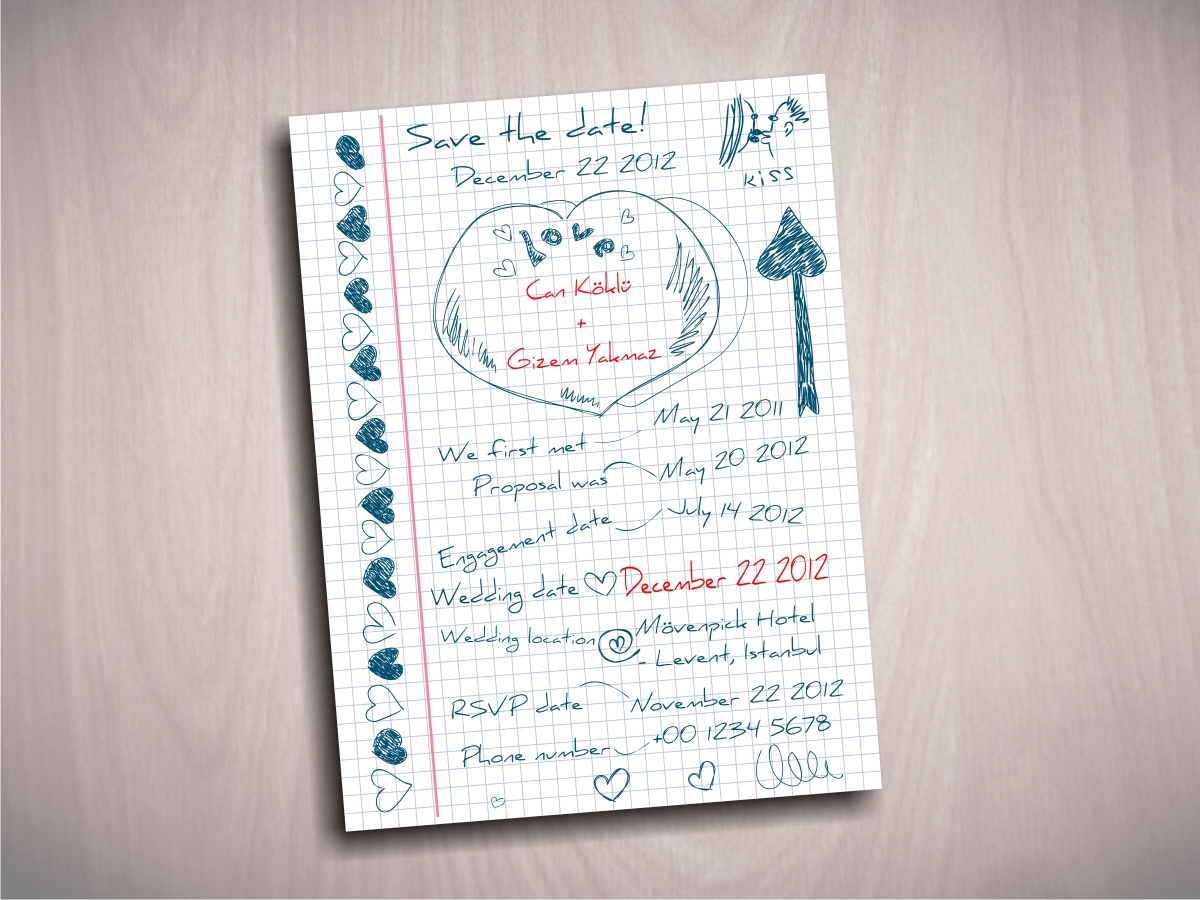 Save the date!
December 22 2012
KISS
LOVE
Can Köklü
+
Gizem Yakmaz
We first met May 21 2011
Proposal was May 20 2012
Engagement date July 14 2012
Wedding date December 22 2012
Wedding location Mövenpick Hotel
- Levent, Istanbul
RSVP date November 22 2012
Phone number +00 1234 5678